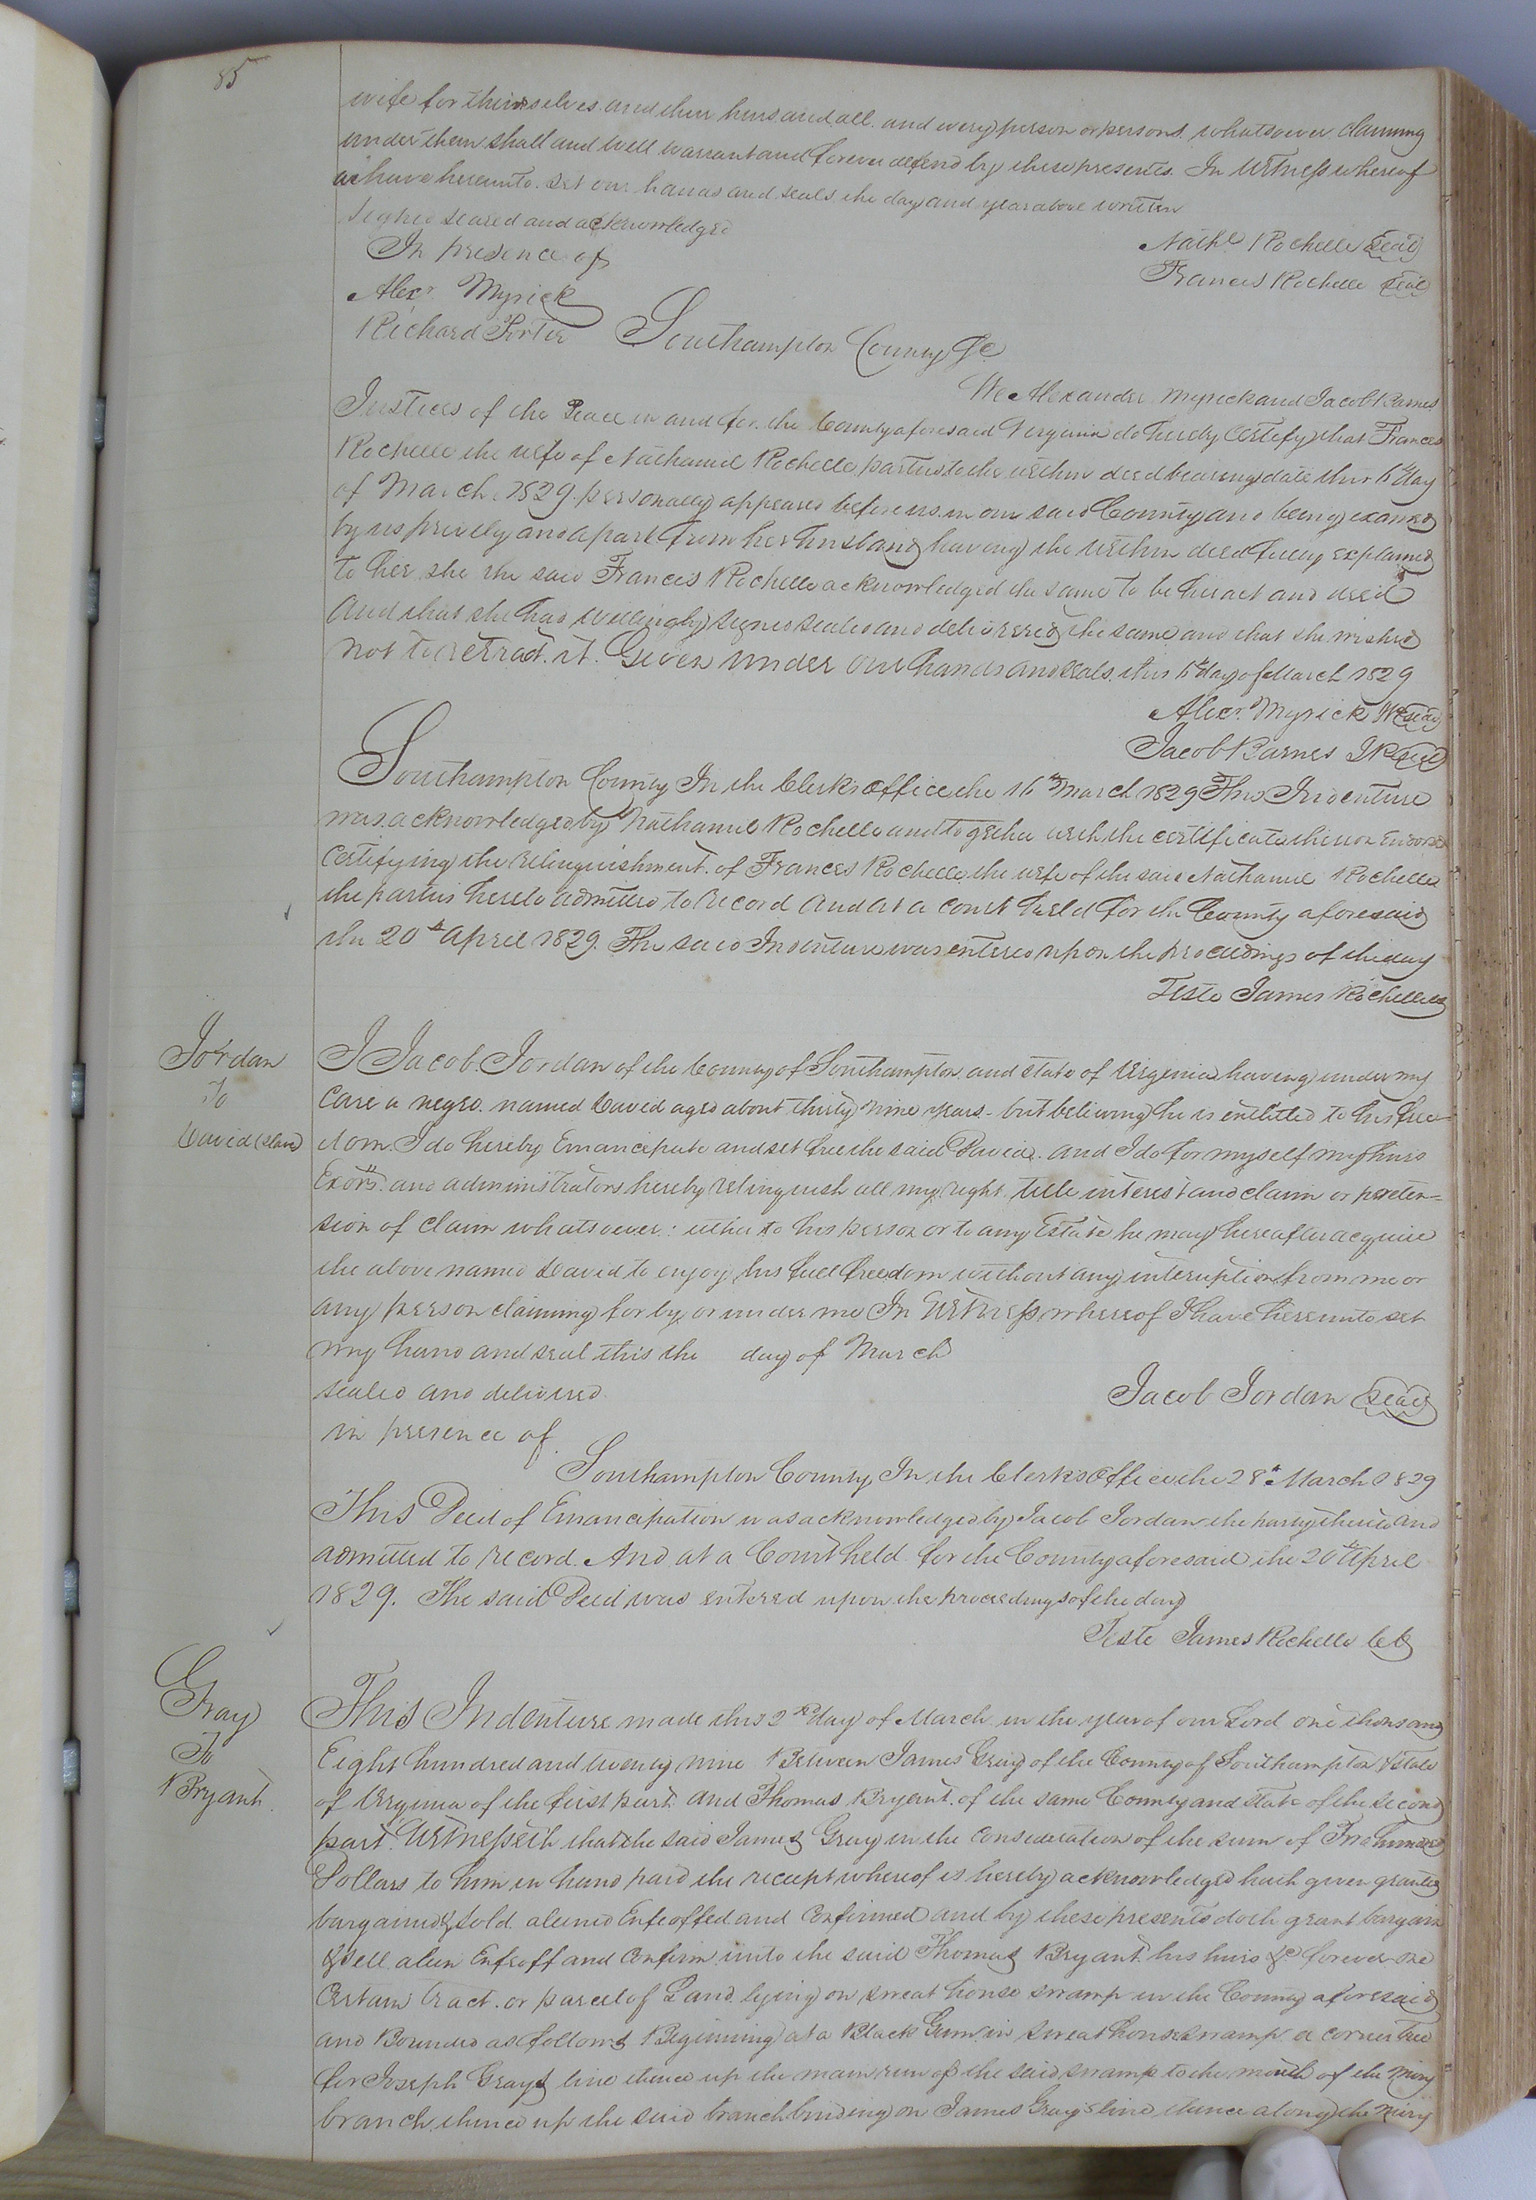 85
wife for themselves and their heirs and all and every person or persons whatsoever claiming
under them shall and will warrant and forever defend by these presents. In Witness whereof
we have hereunto set our hands and seals the day and year above written
Signed sealed and acknowledged
In presence of
Nathl Rochelle seal
Alexr Myrick
Francis Rochelle seal
Richard Porter
Southampton County Sc
We Alexander Myrick and Jacob Barnes
Justices of the Peace in and for the County aforesaid Virginia do hereby Certify that Frances
Rochelle the wife of Nathaniel Rochelle parties to the within deed bearing date this day
of March 1829 personally appeared before us in our said County and being examd
by us privily and apart from her husband having the within deed fully explained
to her she the said Frances Rochelle acknowledged the same to be her act and deed
And that she had willingly signed sealed and delivered the same and that she wished
not to retract it. Given under our hands and seals this day of March 1829
Alexr Myrick seal
Jacob Barnes JP seal
Southampton County In the Clerks Office the 16th March 1829 This Indenture
was acknowledged by Nathaniel Rochelle and together with the certificate thereon
Certifying the relinquishment of Frances Rochelle the wife of the said Nathaniel Rochelle
the parties hereto admitted to record And at a Court held for the County aforesaid
the 20th April 1829. The said Indenture was entered upon the proceedings of the day
Teste James Rochelle
Jordan
To
David (slave)
I Jacob Jordan of the County of Southampton and State of Virginia having under my
Care a negro named David aged about thirty nine years but believing he is entitled to his free-
dom I do hereby Emancipate and set free the said David. And I do for myself my heirs
Exors and administrators hereby relinquish all my right title interest and claim or preten=
sion of claim whatsoever: either to his person or to any Estate he may hereafter acquire
the above named David to enjoy his full freedom without any interuption from me or
any person claiming for by or under me In Witness whereof I have hereunto set
my hand and seal this the day of March
sealed and delivered
Jacob Jordan seal
in presence of
Southampton County In the Clerk's Office the 28th March 1829
This Deed of Emancipation was acknowledged by Jacob Jordan the party thereto and
admitted to record. And at a Court held for the County aforesaid the 20th April
1829. The said Deed was entered upon the proceedings of the day
Teste James Rochelle
Gray
To
Bryant
This Indenture made this 2nd day of March in the year of our Lord one thousand
Eight hundred and twenty nine Between James Gray of the County of Southampton & State
of Virginia of the first part and Thomas Bryant of the same County and State of the second
part Witnesseth that the said James Gray in the consideration of the sum of
Dollars to him in hand paid the receipt whereof is hereby acknowledged hath given granted
bargained & sold aliened Enfeoffed and Confirmed and by these presents doth grant bargain
& sell alien Enfeoff and Confirm unto the said Thomas Bryant his heirs &c forever one
Certain tract or parcel of Land lying on sweat house swamp in the County aforesaid
and Bounded as follows Beginning at a Black Gum in sweat house swamp a corner tree
for Joseph Grays line thence up the main run of the said swamp to the mouth of the Miry
branch thence up the said branch binding on James Gray's line thence along the Miry